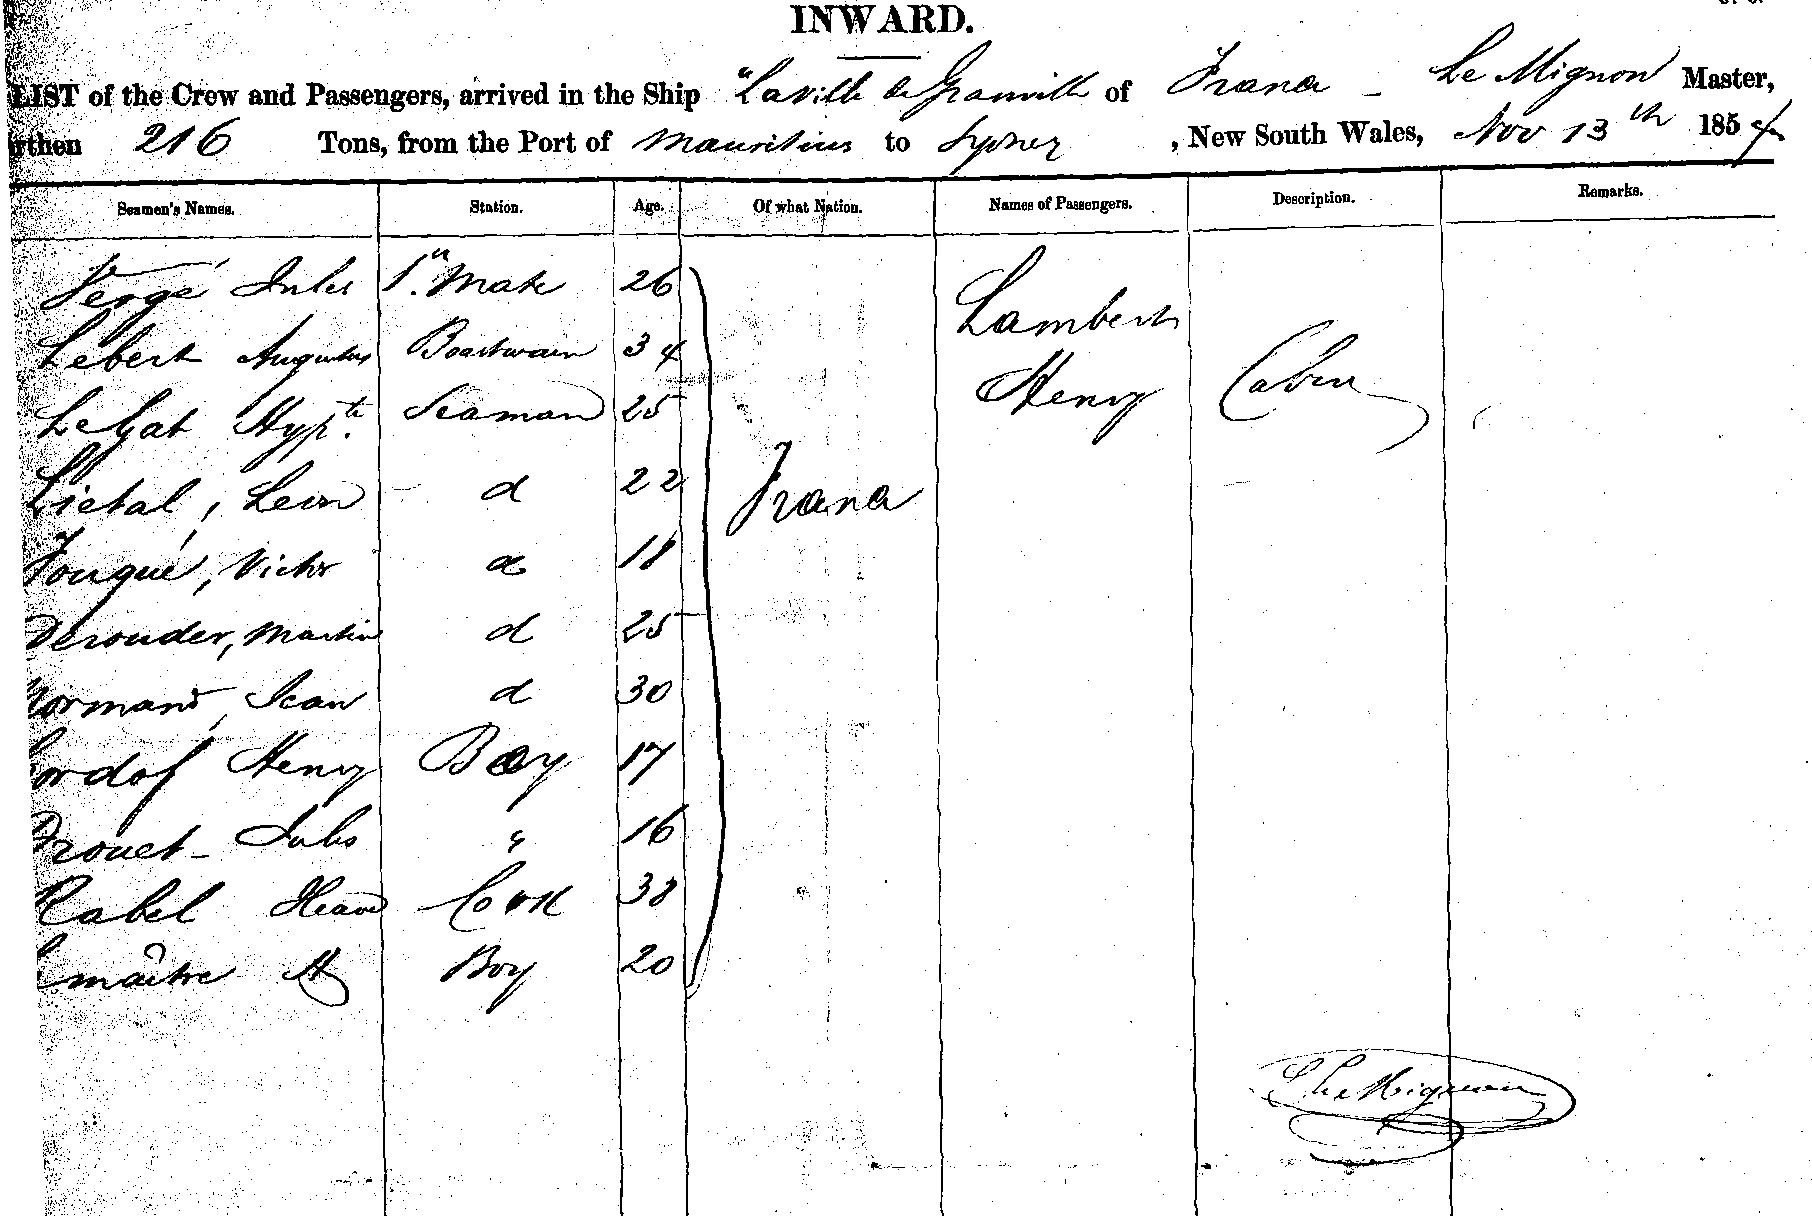 INWARD.
LIST of the Crew and Passengers, arrived in the Ship "La Ville de Granville of France - Le Mignon Master,
rthen 216 Tons, from the Port of Mauritius to Sydney, New South Wales, Nov 13th 1854
Seamen's Names. Station. Age. Of what Nation. Names of Passengers. Description. Remarks.
Vergé Jules 1st Mate 26
Lebert Augustus Boastwain 34
Le Gat Hypte. Seaman 25
Lambert Henry Cabin
Lietal, Leon d 22
France
Fouqué, Victor d 18
Derouder, Martin d 25
Normand, Jean d 30
Henry Boy 17
Drouet - Jules " 16
Rabel Cook 38
maître A Boy 20
Le Mignon